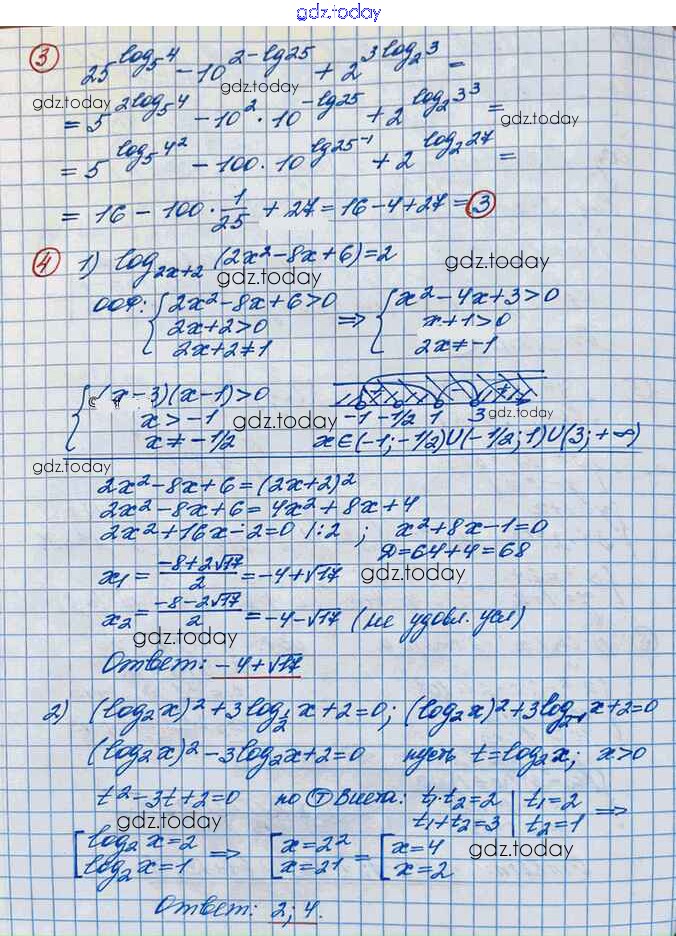 gdz.today
③ 25^(log₅4) − 10^(2−lg25) + 2^(3log₂3) =
gdz.today gdz.today
= 5^(2log₅4) − 10² · 10^(−lg25) + 2^(log₂3³) =
gdz.today
= 5^(log₅4²) − 100 · 10^(lg25⁻¹) + 2^(log₂27) =
= 16 − 100 · 1/25 + 27 = 16 − 4 + 27 = 3
④ 1) log₂ₓ₊₂ (2x² − 8x + 6) = 2
gdz.today gdz.today
ООФ: { 2x² − 8x + 6 > 0 ⇒ { x² − 4x + 3 > 0
2x + 2 > 0 x + 1 > 0
2x + 2 ≠ 1 2x ≠ −1
{ (x − 3)(x − 1) > 0
x > −1 −1 −1/2 1 3
gdz.today gdz.today
x ≠ −1/2 x ∈ (−1; −1/2) ∪ (−1/2; 1) ∪ (3; +∞)
gdz.today
2x² − 8x + 6 = (2x + 2)²
2x² − 8x + 6 = 4x² + 8x + 4
2x² + 16x − 2 = 0 |:2 ; x² + 8x − 1 = 0
D = 64 + 4 = 68
x₁ = (−8 + 2√17)/2 = −4 + √17
gdz.today
x₂ = (−8 − 2√17)/2 = −4 − √17 (не удовл. усл)
gdz.today
Ответ: −4 + √17
2) (log₂x)² + 3log_(1/2) x + 2 = 0; (log₂x)² + 3log_(2⁻¹) x + 2 = 0
(log₂x)² − 3log₂x + 2 = 0 пусть t = log₂x; x > 0
t² − 3t + 2 = 0 по Ⓣ Виета: t₁·t₂ = 2 | t₁ = 2 ⇒
t₁ + t₂ = 3 | t₂ = 1
gdz.today gdz.today
[ log₂x = 2 ⇒ [ x = 2² = [ x = 4
log₂x = 1 x = 2¹ x = 2
Ответ: 2; 4.